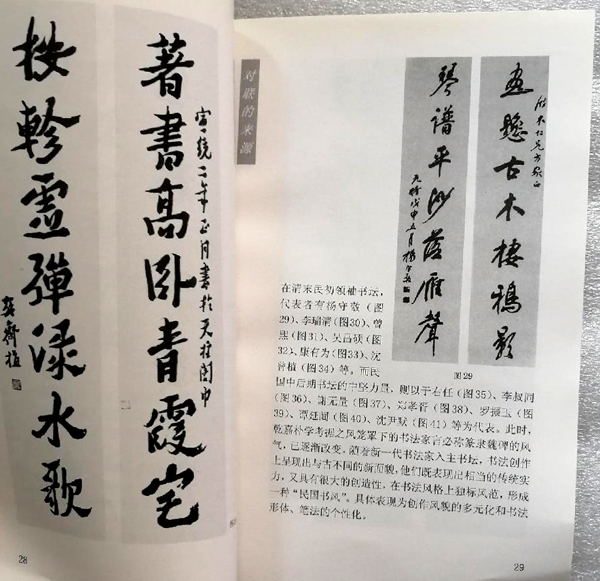 著書高卧青霞宅
宣統二年正月書於天柱閣中
按軫靈彈渌水歌
28
对联的来源
畫懸古木棲鴉影
木仁兄方家正
琴譜平沙落雁聲
光緒戊申五月楊守敬
图29
在清末民初领袖书坛，
代表者有杨守敬（图
29）、李瑞清（图30）、曾
熙（图31）、吴昌硕（图
32）、康有为（图33）、沈
曾植（图34）等。而民
国中后期书坛的中坚力量，则以于右任（图35）、李叔同
（图36）、谢无量（图37）、郑孝胥（图38）、罗振玉（图
39）、谭延闿（图40）、沈尹默（图41）等为代表。此时，
乾嘉朴学考据之风笼罩下的书法家言必称篆隶魏碑的风
气，已逐渐改变。随着新一代书法家入主书坛，书法创作
上呈现出与古不同的新面貌，他们既表现出相当的传统实
力，又具有很大的创造性，在书法风格上独标风范，形成
一种“民国书风”。具体表现为创作风貌的多元化和书法
形体、笔法的个性化。
29